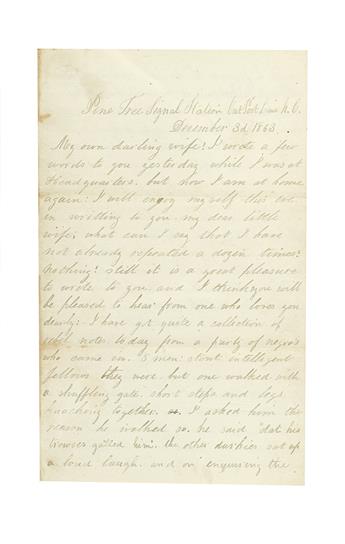 Pine Tree Signal Station Out Post Line N. C.
December 3d 1863.
My own darling wife! I wrote a few
words to you yesterday while I was at
Headquarters. but now I am at home
again: I will enjoy myself this eve
in writting to you my dear little
wife; what can I say that I have
not already repeated a dozen times?
nothing! still it is a great pleasure
to write to you. and I think you will
be pleased to hear from one who loves you
dearly! I have got quite a collection of
rebel notes to day from a party of negro's
who came in. 5 men: stout intelligent
fellows they were. but one walked with
a shuffling gate, short steps and legs
together. I asked him the
reason he walked so. he said "dat his
trowser galled him". the other darkies set up
a loud laugh. and on enquiring the